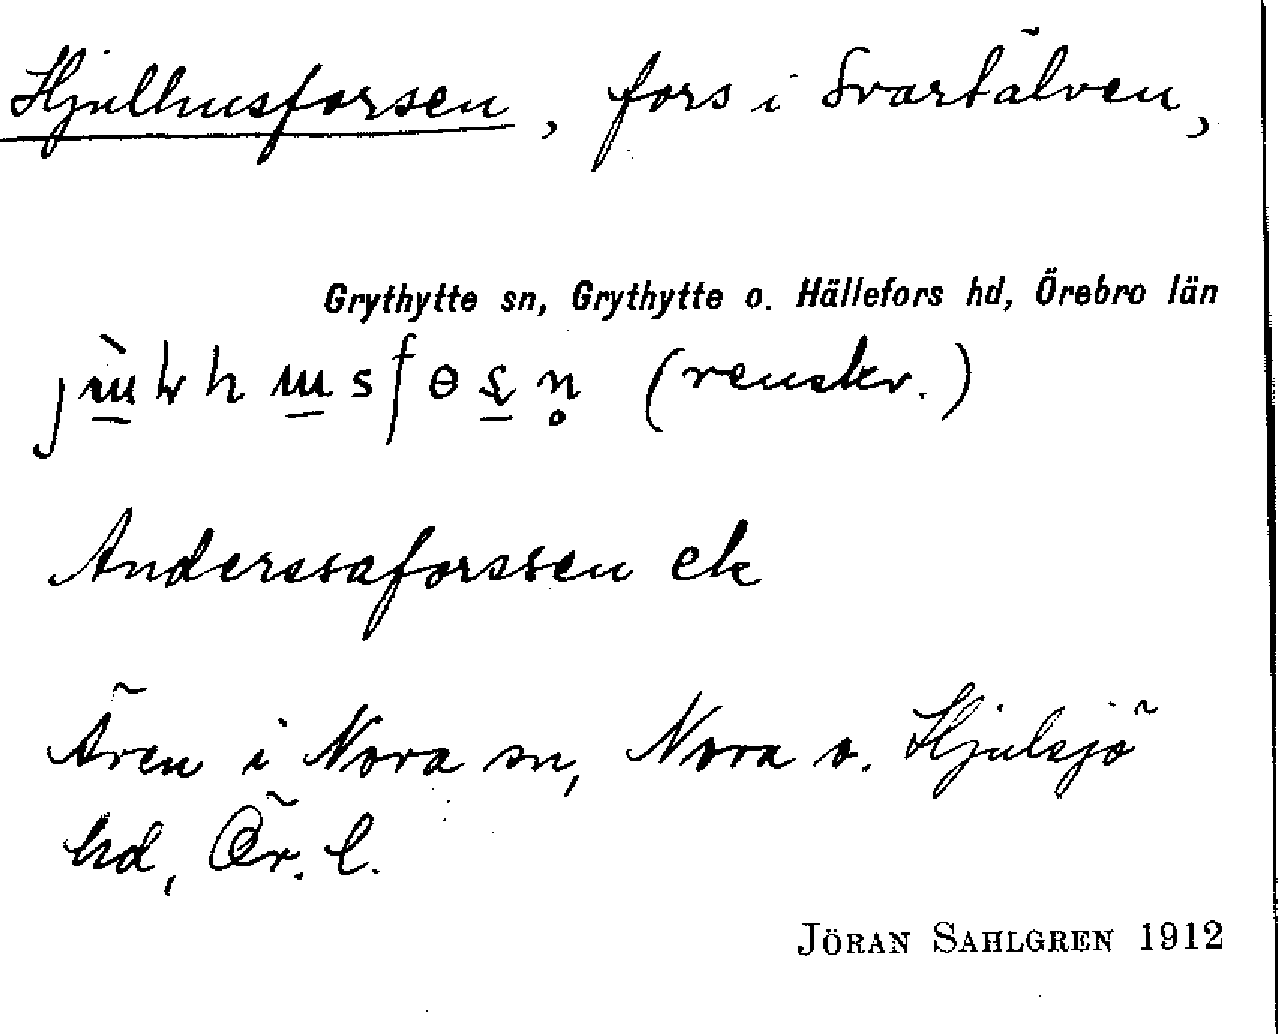 Hjulhusforsen, fors i Svartälven,
Grythytte sn, Grythytte o. Hällefors hd, Örebro län
(renskr.)
Anderssaforssen ek
Åren i Nora sn, Nora o. Hjulsjö
hd, Ör. l.
JÖRAN SAHLGREN 1912